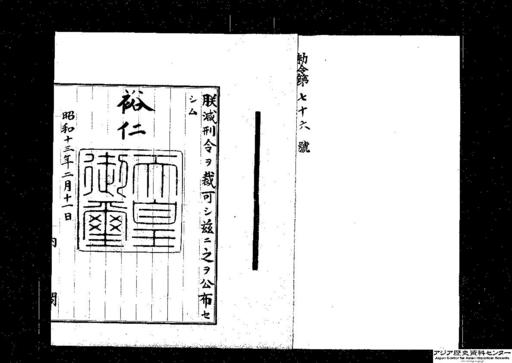 勅令第七十六號
朕減刑令ヲ裁可シ玆ニ之ヲ公布セ
シム
裕仁
天皇
御璽
昭和十三年二月十一日
内閣
アジア歴史資料センター
Japan Center for Asian Historical Records